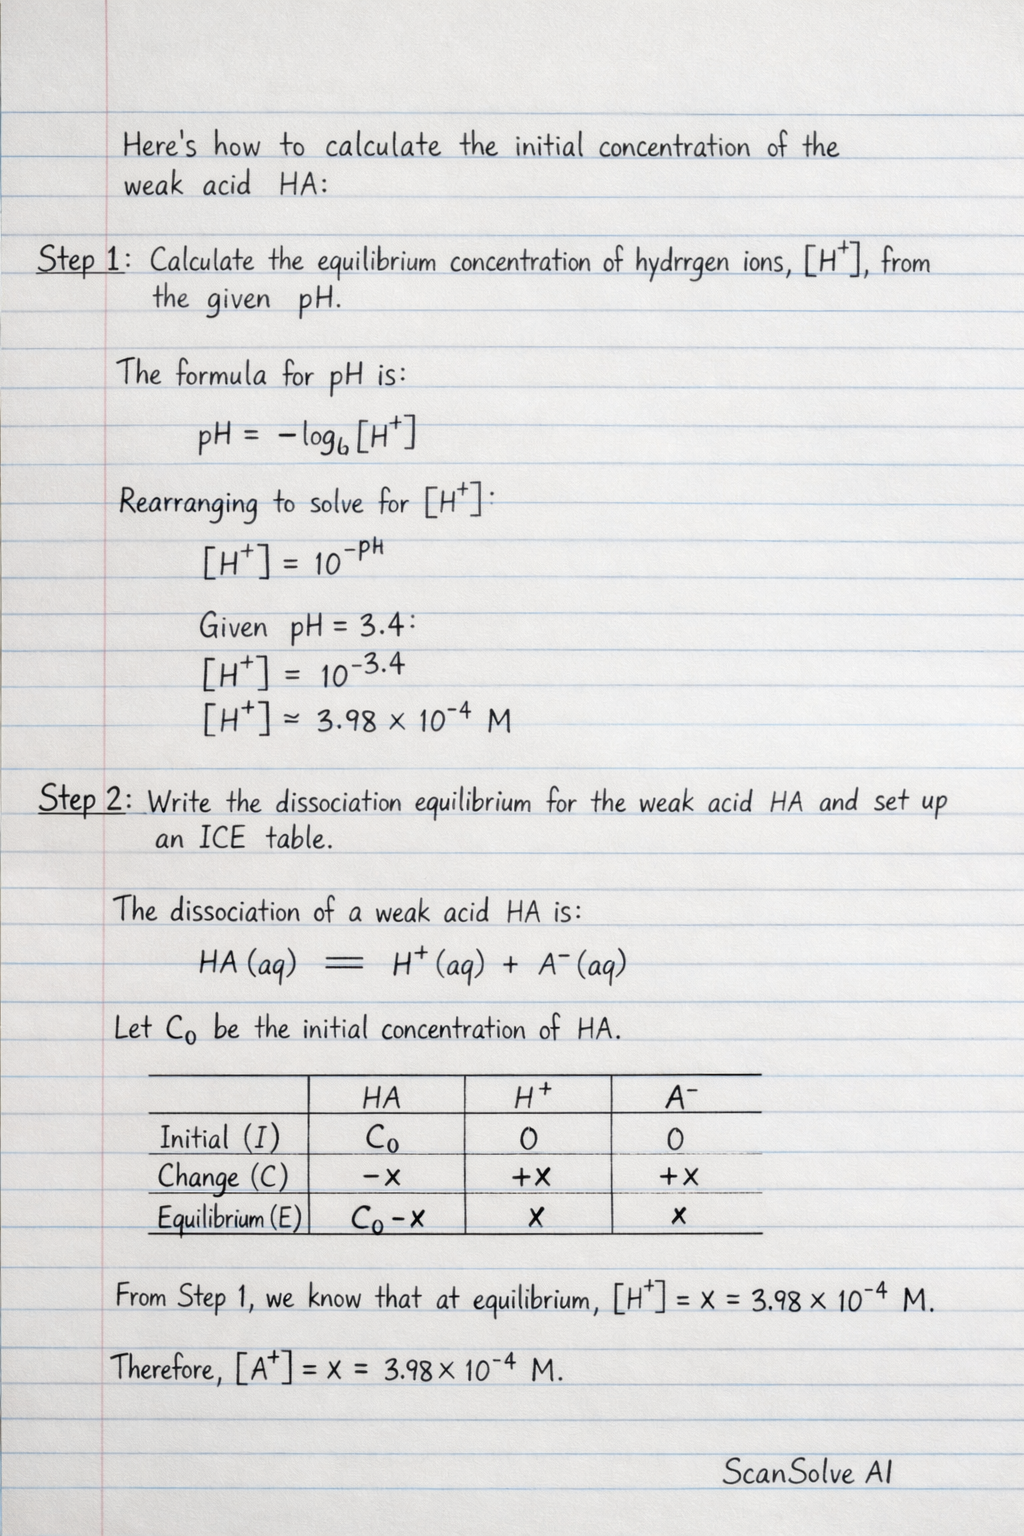 Here's how to calculate the initial concentration of the
weak acid HA:
Step 1: Calculate the equilibrium concentration of hydrrgen ions, [H⁺], from
the given pH.
The formula for pH is:
pH = −log₆ [H⁺]
Rearranging to solve for [H⁺]:
[H⁺] = 10⁻ᵖᴴ
Given pH = 3.4:
[H⁺] = 10⁻³·⁴
[H⁺] ≃ 3.98 × 10⁻⁴ M
Step 2: Write the dissociation equilibrium for the weak acid HA and set up
an ICE table.
The dissociation of a weak acid HA is:
HA (aq) ═ H⁺ (aq) + A⁻ (aq)
Let C₀ be the initial concentration of HA.
HA H⁺ A⁻
Initial (I) C₀ 0 0
Change (C) −x +x +x
Equilibrium (E) C₀ −x x x
From Step 1, we know that at equilibrium, [H⁺] = x = 3.98 × 10⁻⁴ M.
Therefore, [A⁺] = x = 3.98 × 10⁻⁴ M.
ScanSolve AI